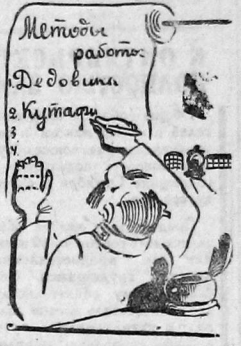 Методы
работы:
1. Дедовщина
2. Кутафи
3
4